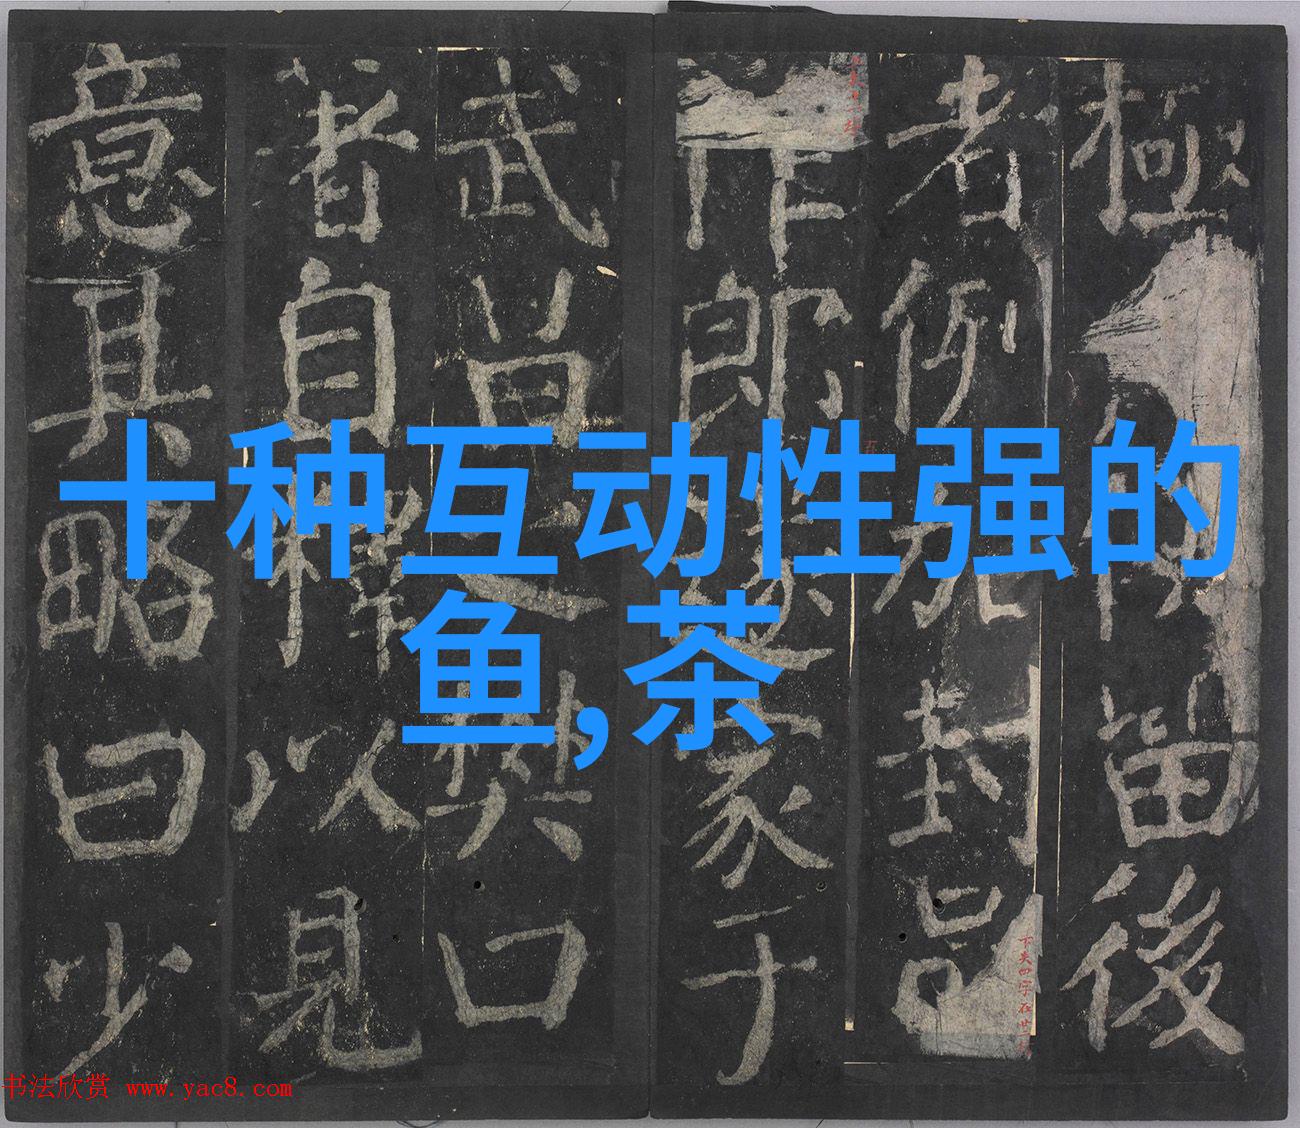 十种互动性强的
鱼,茶
極留後
者例加封邑
作郎遂家于
武昌之樊口
著自釋以見
意其略曰少
书法欣赏 www.yac8.com